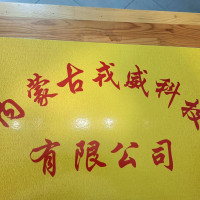 内蒙古戎威科技
有限公司